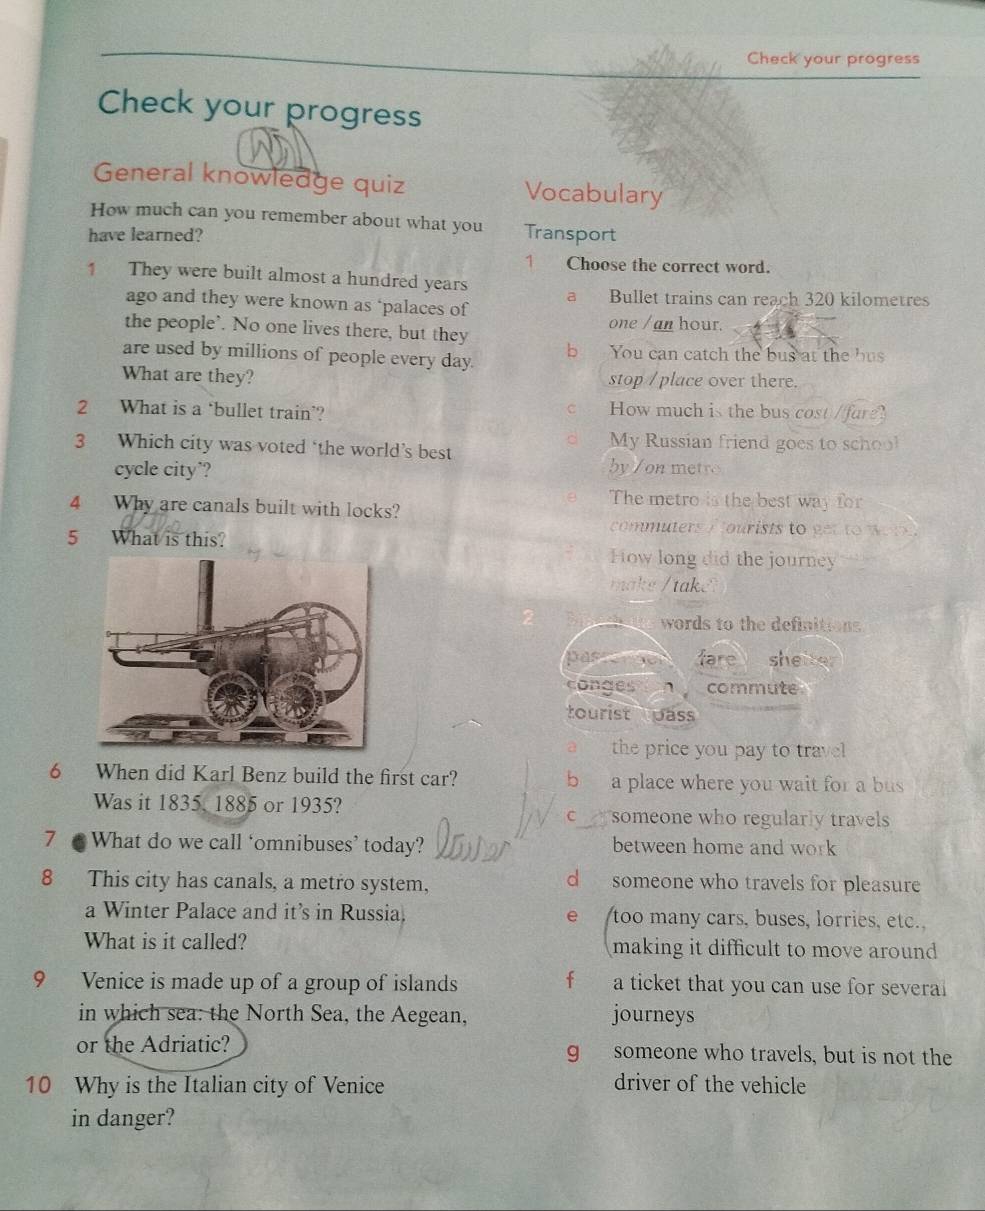 Check your progress
Check your progress
General knowledge quiz
How much can you remember about what you
have learned?
1 They were built almost a hundred years
ago and they were known as ‘palaces of
the people’. No one lives there, but they
are used by millions of people every day.
What are they?
2 What is a ‘bullet train’?
3 Which city was voted ‘the world’s best
cycle city’?
4 Why are canals built with locks?
5 What is this?
6 When did Karl Benz build the first car?
Was it 1835, 1885 or 1935?
7 What do we call ‘omnibuses’ today?
8 This city has canals, a metro system,
a Winter Palace and it’s in Russia.
What is it called?
9 Venice is made up of a group of islands
in which sea: the North Sea, the Aegean,
or the Adriatic?
10 Why is the Italian city of Venice
in danger?
Vocabulary
Transport
1 Choose the correct word.
a Bullet trains can reach 320 kilometres
one / an hour.
b You can catch the bus at the bus
stop / place over there.
c How much is the bus cost / fare?
d My Russian friend goes to school
by / on metro
e The metro is the best way for
commuters / tourists to get to
How long did the journey
make / take?
2 words to the definitions
passenger fare shelter
congestion commuter
tourist pass
a the price you pay to travel
b a place where you wait for a bus
c someone who regularly travels
between home and work
d someone who travels for pleasure
e too many cars, buses, lorries, etc.,
making it difficult to move around
f a ticket that you can use for several
journeys
g someone who travels, but is not the
driver of the vehicle